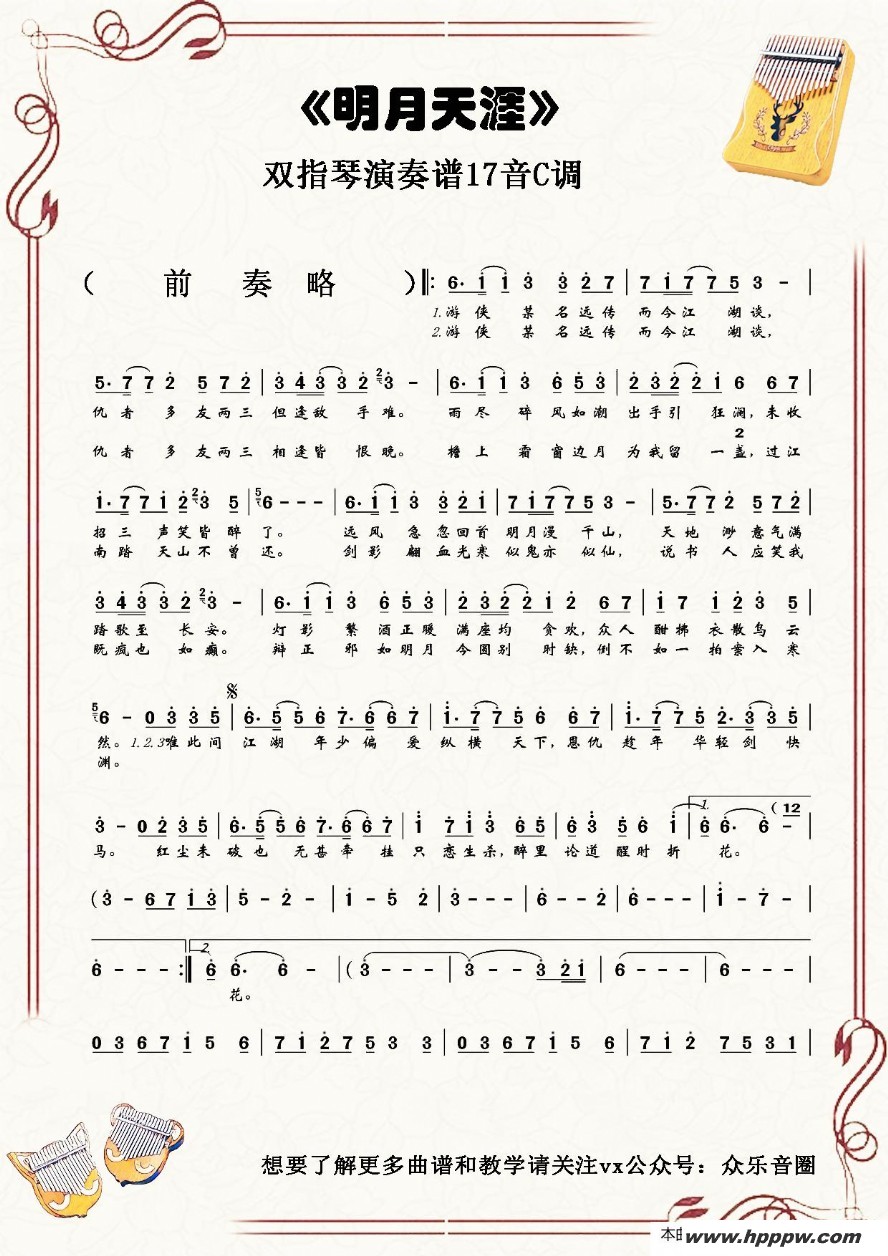 《明月天涯》
双指琴演奏谱17音C调
( 前 奏 略 ) ‖: 6· i i 3 3 2 7 | 7 i 7 7 5 3 - |
1.游 侠 某 名 远 传 而 今 江 湖 谈,
2.游 侠 某 名 远 传 而 今 江 湖 谈,
5· 7 7 2 5 7 2 | 3 4 3 3 2 3 - | 6· i i 3 6 5 3 | 2 3 2 2 i 6 6 7 |
仇 者 多 友 两 三 但 逢 敌 手 难。 雨 尽 碎 风 如 潮 出 手 引 狂 澜, 未 收
2
仇 者 多 友 两 三 相 逢 皆 恨 晚。 檐 上 霜 窗 边 月 为 我 留 一 盏, 过 江
i· 7 7 i 2 3 5 | 6 - - - | 6· i i 3 3 2 i | 7 i 7 7 5 3 - | 5· 7 7 2 5 7 2 |
招 三 声 笑 皆 醉 了。 远 风 急 忽 回 首 明 月 漫 千 山, 天 地 渺 意 气 满
南 踏 天 山 不 曾 还。 剑 影 翩 血 光 寒 似 鬼 亦 似 仙, 说 书 人 应 笑 我
3 4 3 3 2 3 - | 6· i i 3 6 5 3 | 2 3 2 2 i 2 6 7 | i 7 i 2 3 5 |
踏 歌 至 长 安。 灯 影 繁 酒 正 暖 满 座 均 贪 欢, 众 人 酣 拂 衣 散 鸟 云
既 疯 也 如 癫。 辩 正 邪 如 明 月 今 圆 别 时 缺, 倒 不 如 一 拍 案 入 寒
6 - 0 3 3 5 | 6· 5 5 6 7· 6 6 7 | i· 7 7 5 6 6 7 | i· 7 7 5 2· 3 3 5 |
然。1.2.3唯 此 间 江 湖 年 少 偏 爱 纵 横 天 下, 恩 仇 趁 年 华 轻 剑 快
渊。
3 - 0 2 3 5 | 6· 5 5 6 7· 6 6 7 | i 7 i 3 6 5 | 6 3 5 6 i | 1. 6 6· 6 - ( 12 |
马。 红 尘 未 破 也 无 甚 牵 挂 只 恋 生 杀, 醉 里 论 道 醒 时 折 花。
(3 - 6 7 i 3 | 5 - 2 - | i - 5 2 | 3 - - - | 6 - 2 - | 6 - - - | i - 7 - |
6 - - - :‖ 2. 6 6· 6 - | (3 - - - | 3 - - 3 2 i | 6 - - - | 6 - - - |
花。
0 3 6 7 i 5 6 | 7 i 2 7 5 3 3 | 0 3 6 7 i 5 6 | 7 i 2 7 5 3 1 |
想要了解更多曲谱和教学请关注vx公众号：众乐音圈
www.hpppw.com